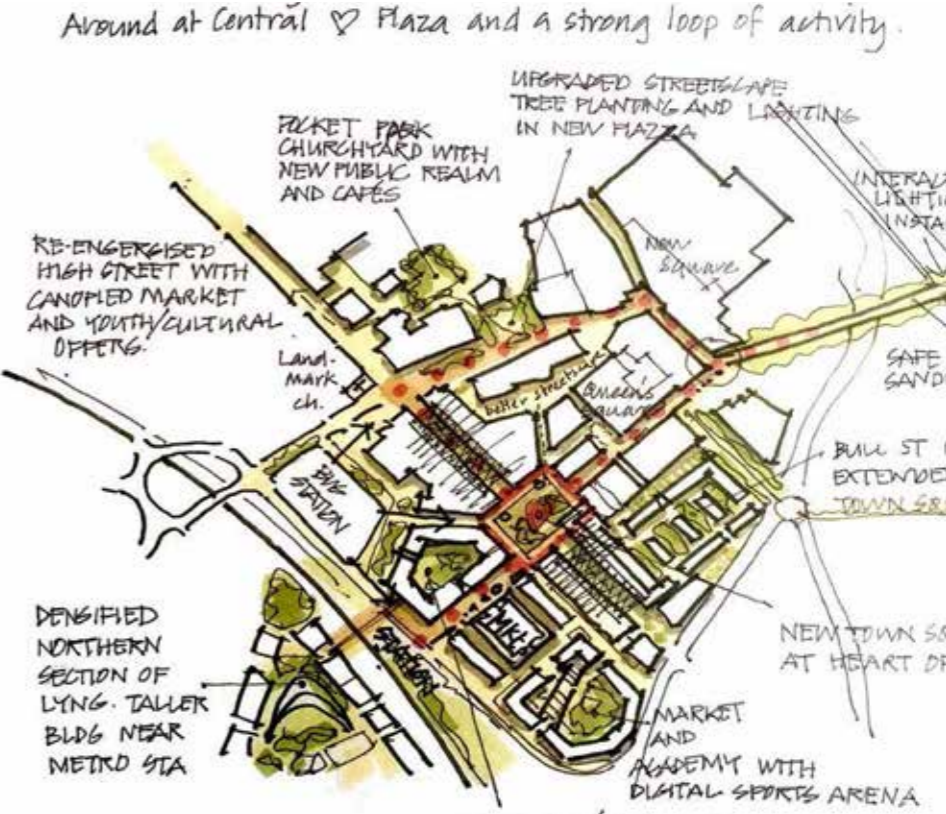 Around at Central ♡ Plaza and a strong loop of activity.
UPGRADED STREETSCAPE
TREE PLANTING AND LIGHTING
IN NEW PIAZZA
POCKET PARK
CHURCHYARD WITH
NEW PUBLIC REALM
AND CAFÉS
INTERAC
LIGHTI
INSTA
RE-ENGERGISED
HIGH STREET WITH
CANOPIED MARKET
AND YOUTH/CULTURAL
OFFERS.
New
Square
Land-
mark
ch.
better streetscape
Queen's
Square
SAFE
SAND
BUS
STATION
BULL ST
EXTENDE
TOWN SQ
DENSIFIED
NORTHERN
SECTION OF
LYNG. TALLER
BLDG NEAR
METRO STA
STATION
Mkt
NEW TOWN SQ
AT HEART OF
MARKET
AND
ACADEMY WITH
DIGITAL SPORTS ARENA